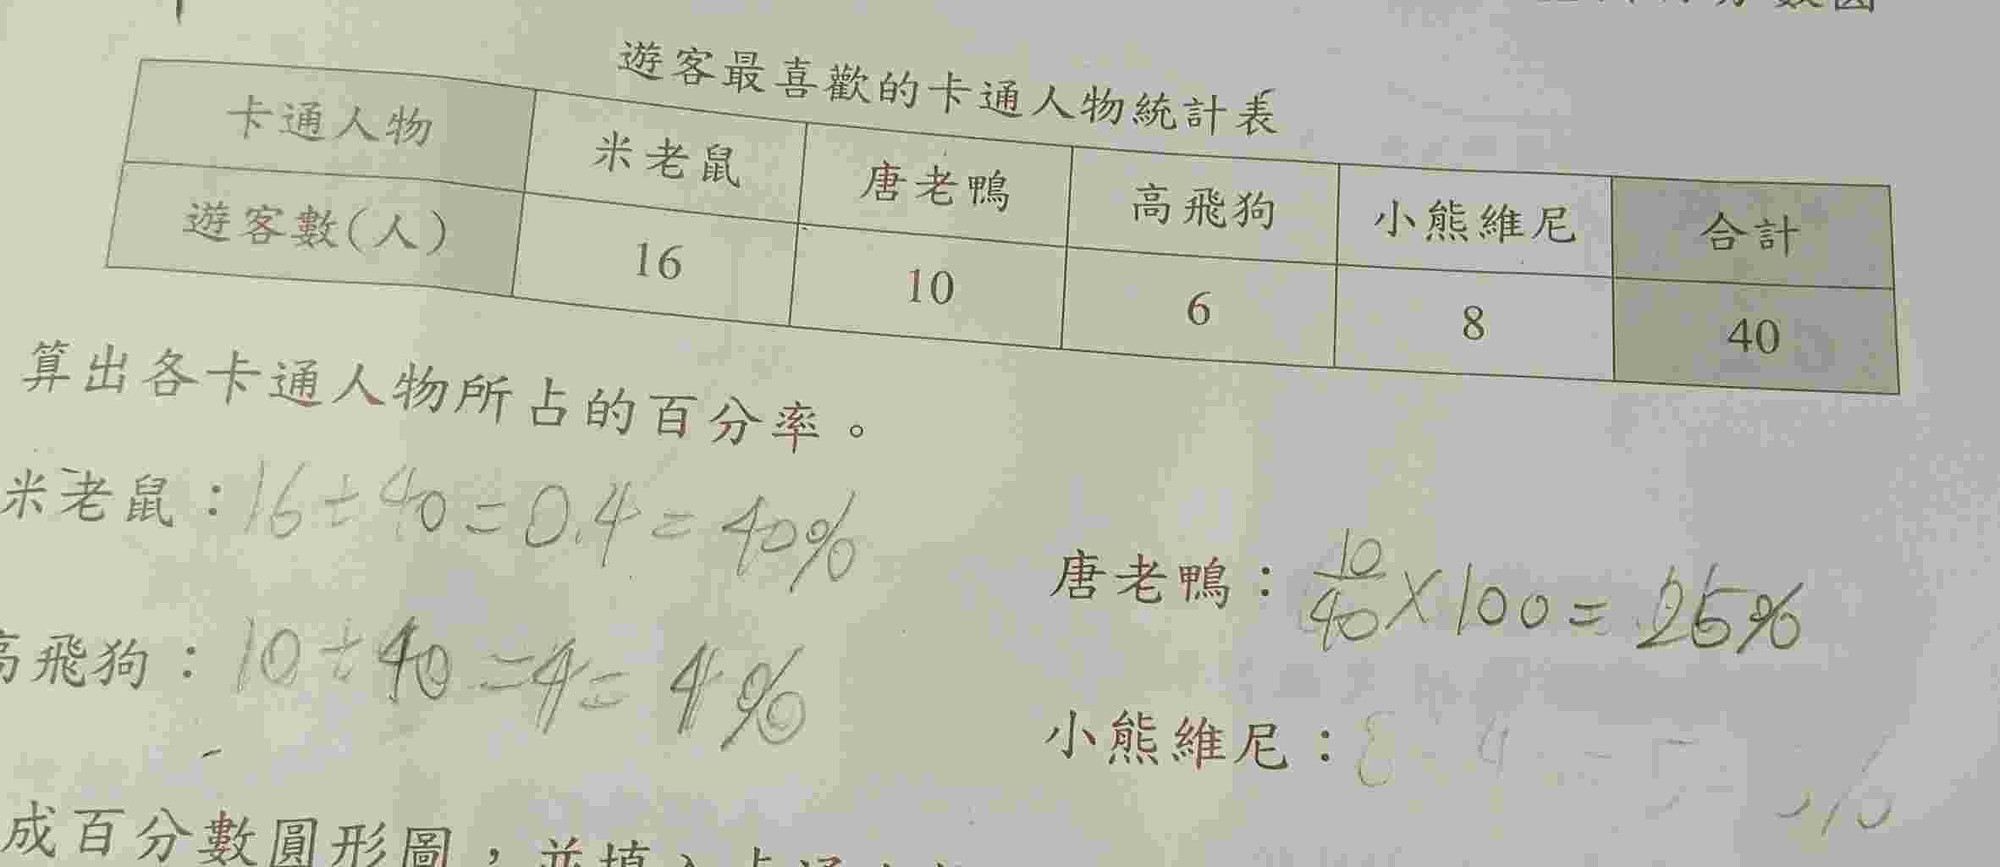 遊客最喜歡的卡通人物統計表
卡通人物 米老鼠 唐老鴨 高飛狗 小熊維尼 合計
遊客數(人) 16 10 6 8 40
算出各卡通人物所占的百分率。
米老鼠：16÷40=0.4=40%
唐老鴨：10/40×100=25%
高飛狗：10÷40=4=4%
小熊維尼：8
成百分數圓形圖，並填入卡通